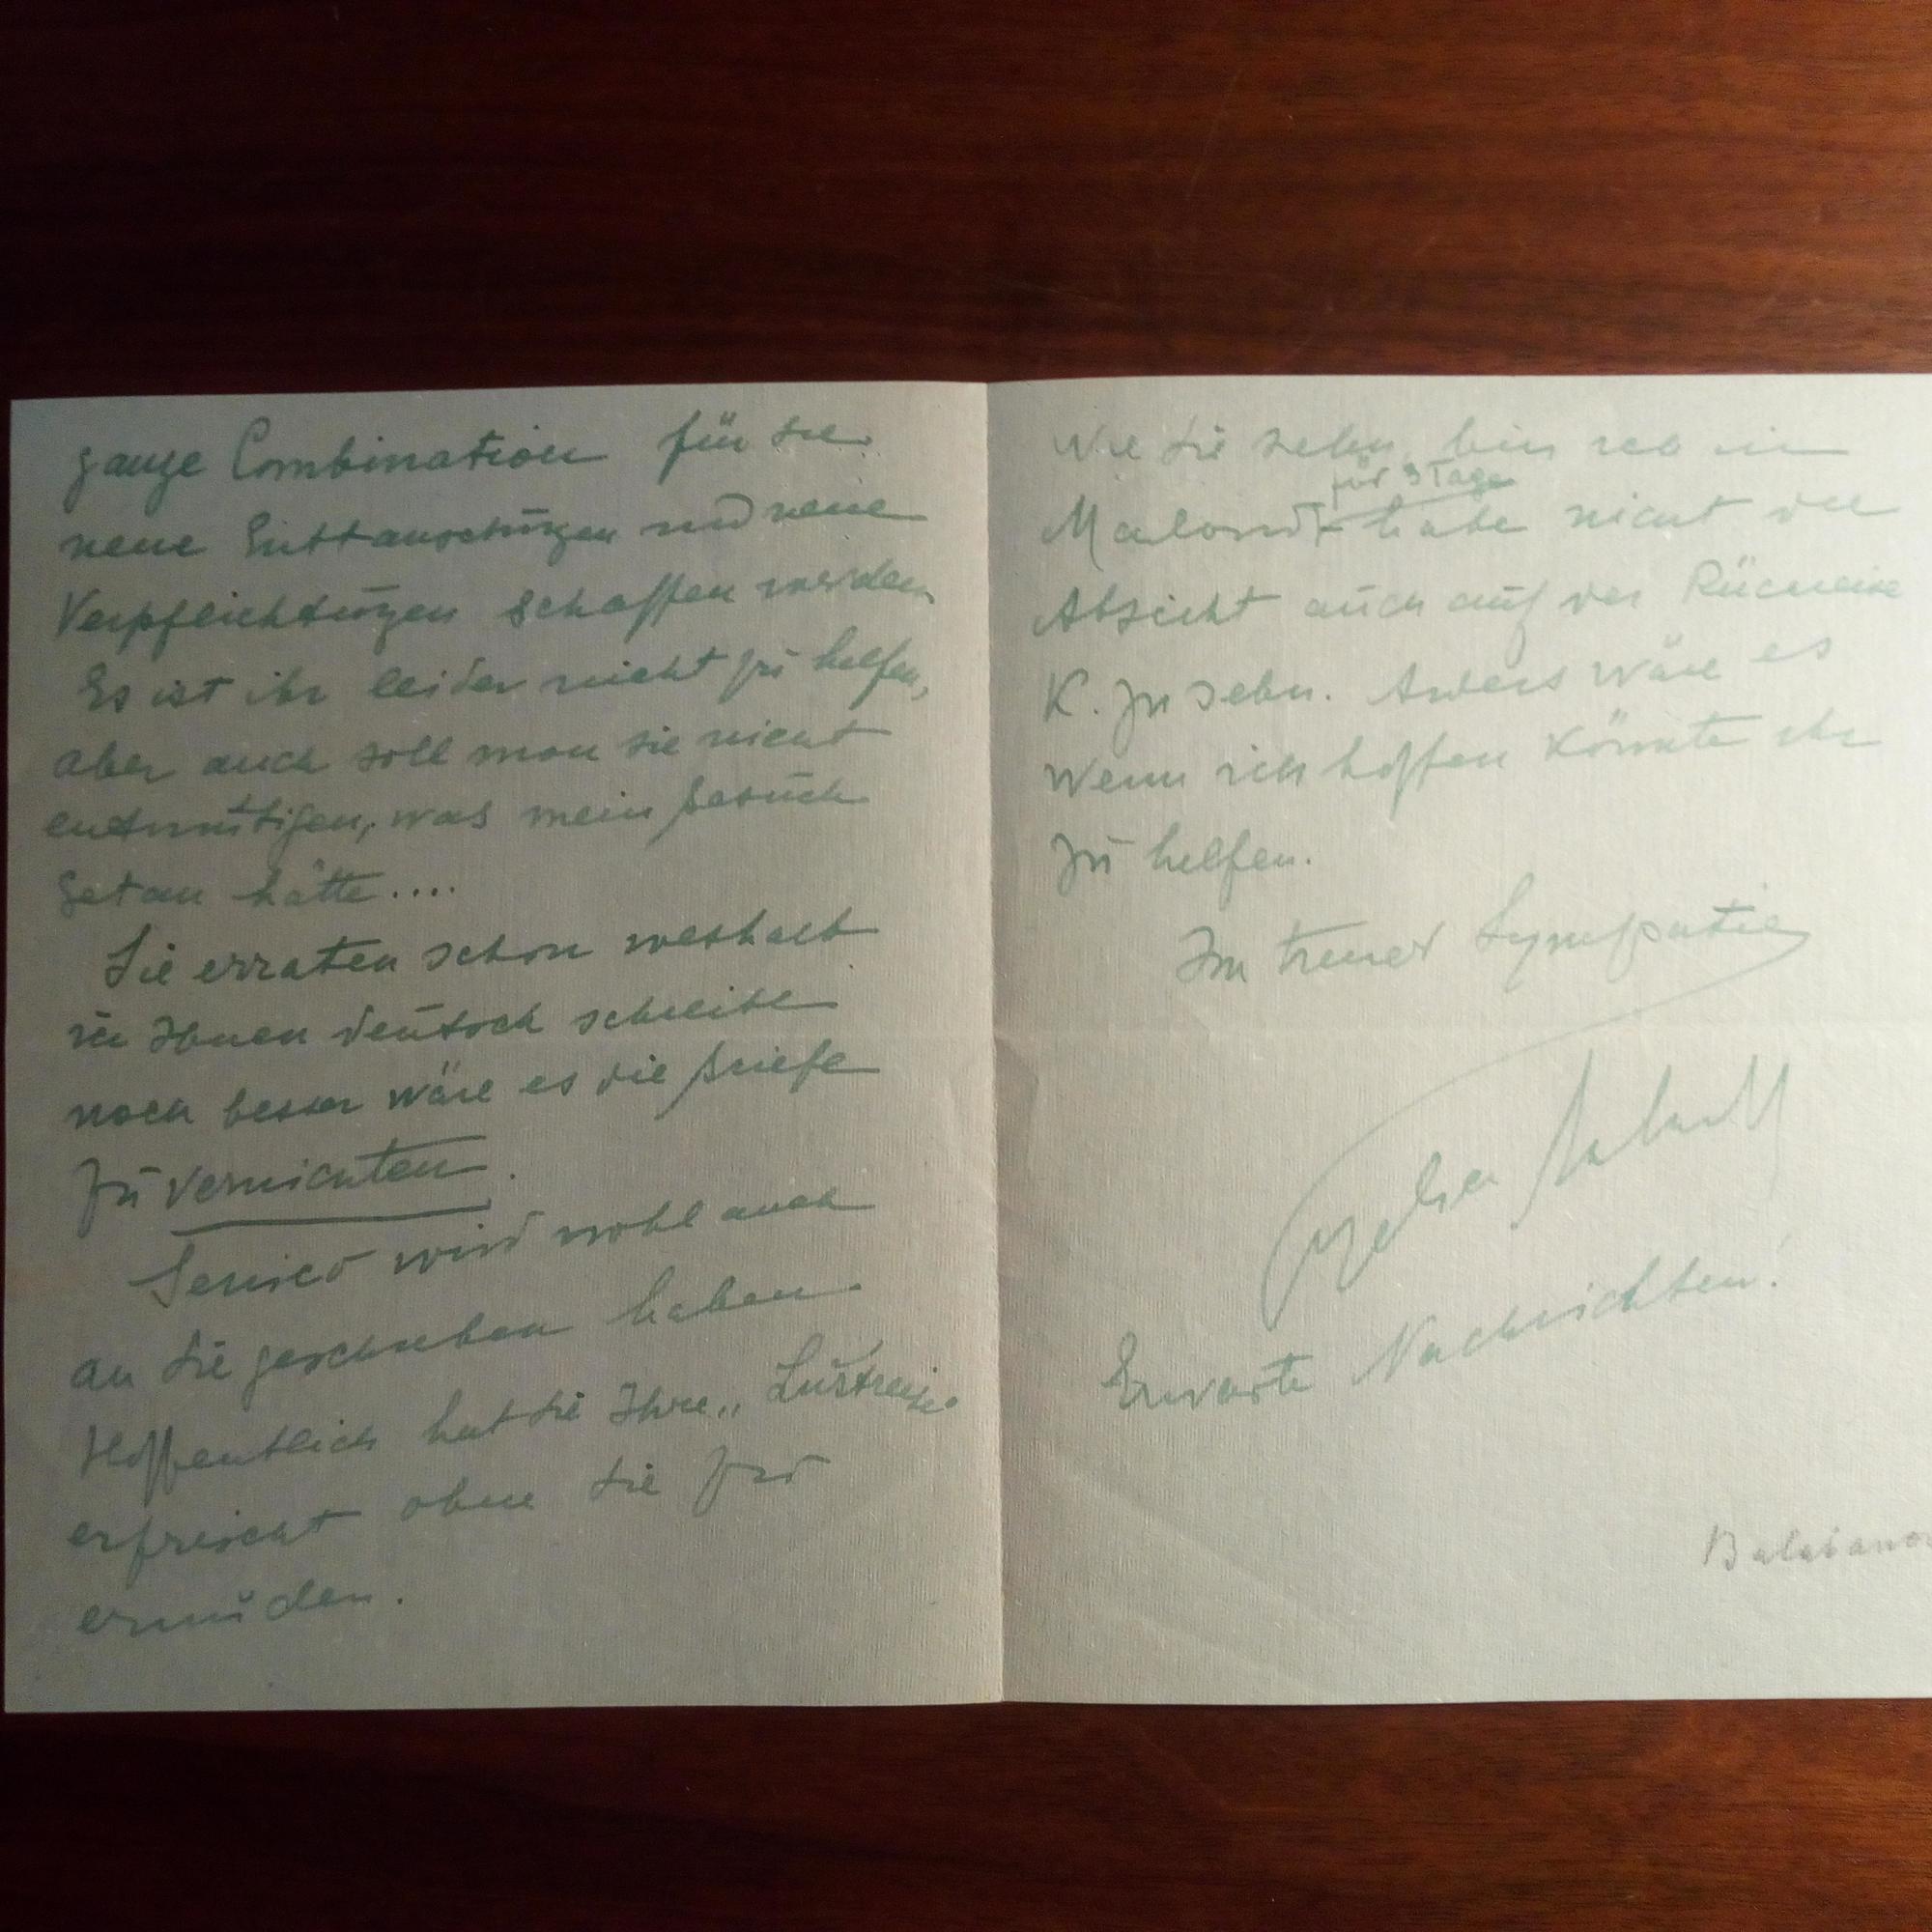 ganze Combination für sie
neue Enttauschungen und neue
Verpflichtungen schaffen werden.
Es ist ihr leider nicht zu helfen,
aber auch soll man sie nicht
entmutigen, was mein Besuch
getan hätte....
Sie erraten schon weshalb
ich Ihnen deutsch schreibe
noch besser wäre es die Briefe
zu vernichten.
wird wohl auch
an Sie geschrieben haben.
Hoffentlich hat Sie Ihre „Lustreise"
erfrischt ohne Sie zu
ermüden.
Wie Sie sehn, bin ich in
für 3 Tage
Mailand habe nicht die
Absicht auch auf der Rückreise
K. zu sehn. Anders wäre es
wenn ich hoffen könnte ihr
zu helfen.
In treuer Sympatie
Erwarte Nachrichten!